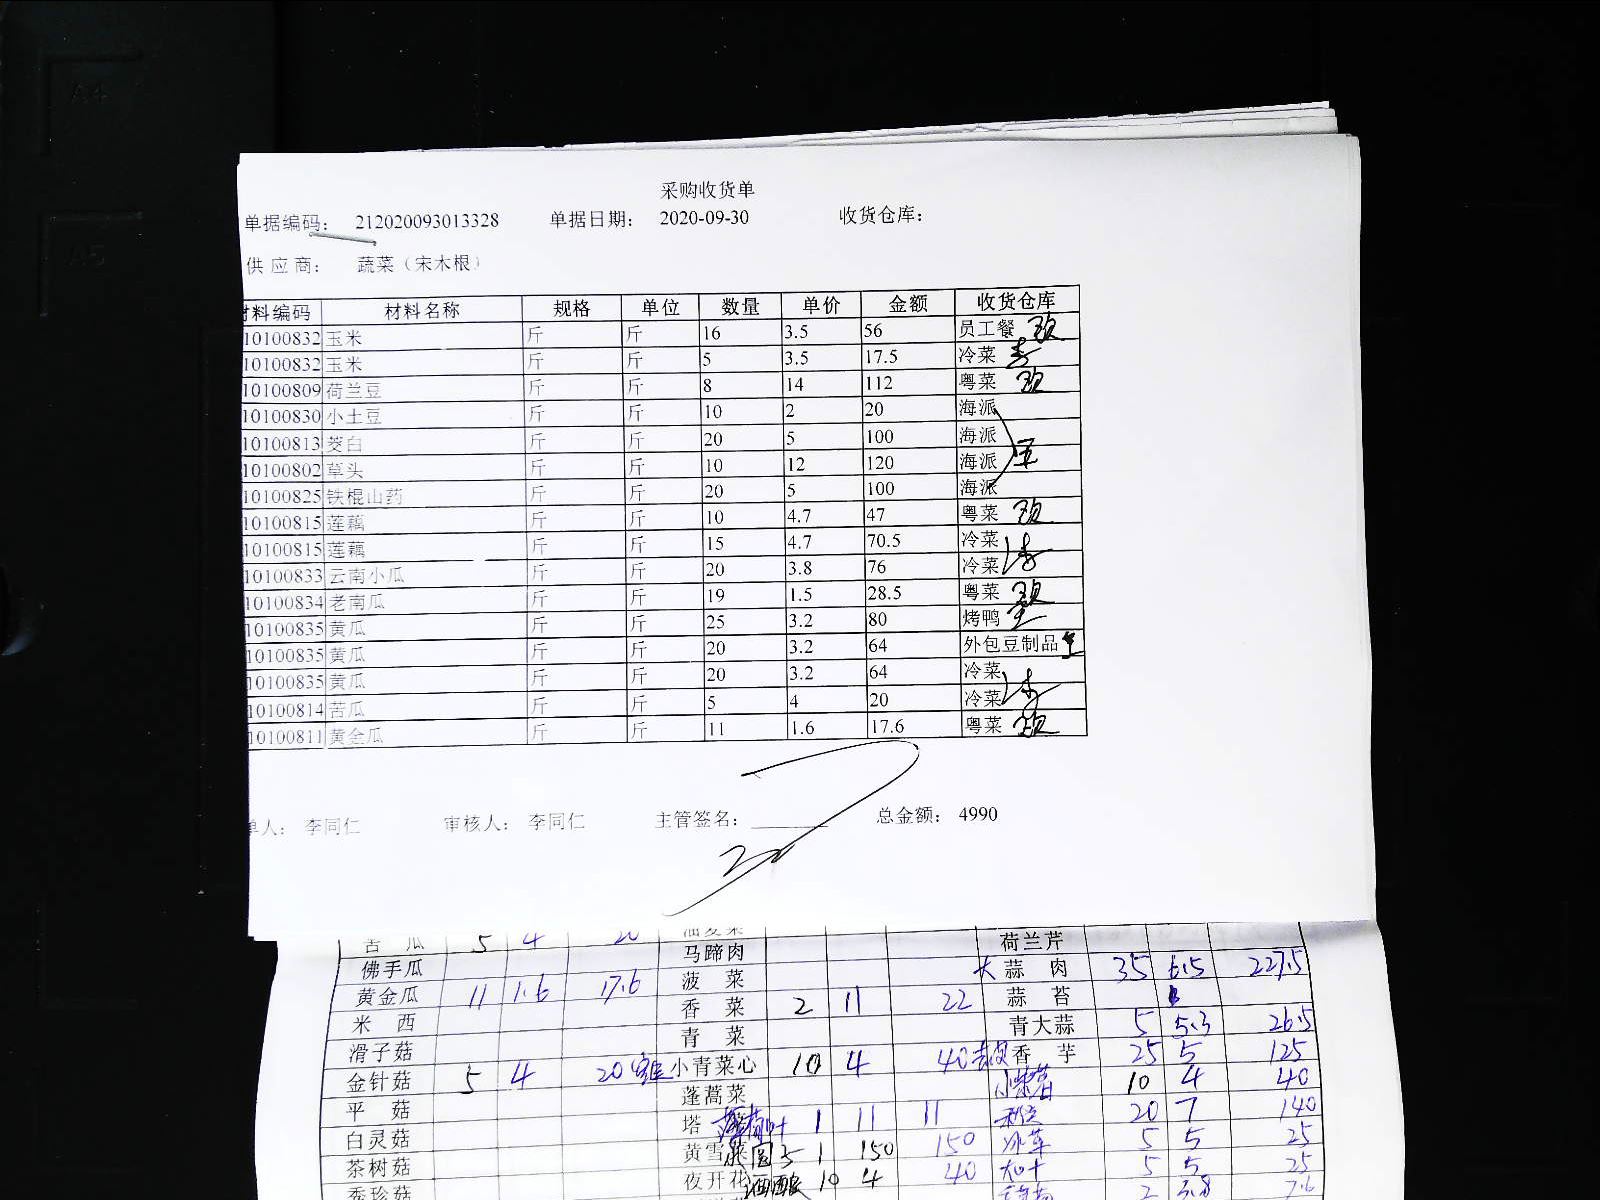 采购收货单
单据编码： 212020093013328 单据日期： 2020-09-30 收货仓库：
供应商： 蔬菜（宋木根）
材料编码 材料名称 规格 单位 数量 单价 金额 收货仓库
10100832 玉米 斤 斤 16 3.5 56 员工餐
10100832 玉米 斤 斤 5 3.5 17.5 冷菜
10100809 荷兰豆 斤 斤 8 14 112 粤菜
10100830 小土豆 斤 斤 10 2 20 海派
10100813 茭白 斤 斤 20 5 100 海派
10100802 草头 斤 斤 10 12 120 海派
10100825 铁棍山药 斤 斤 20 5 100 海派
10100815 莲藕 斤 斤 10 4.7 47 粤菜
10100815 莲藕 斤 斤 15 4.7 70.5 冷菜
10100833 云南小瓜 斤 斤 20 3.8 76 冷菜
10100834 老南瓜 斤 斤 19 1.5 28.5 粤菜
10100835 黄瓜 斤 斤 25 3.2 80 烤鸭
10100835 黄瓜 斤 斤 20 3.2 64 外包豆制品
10100835 黄瓜 斤 斤 20 3.2 64 冷菜
10100814 苦瓜 斤 斤 5 4 20 冷菜
10100811 黄金瓜 斤 斤 11 1.6 17.6 粤菜
单人： 李同仁 审核人： 李同仁 主管签名： 总金额： 4990
苦瓜 5 4 20 荷兰芹
佛手瓜 马蹄肉 大蒜肉 35 6.5 227.5
黄金瓜 11 1.6 17.6 菠菜 蒜苔
米西 香菜 2 11 22 青大蒜 5 5.3 26.5
滑子菇 青菜 香芋 25 5 125
金针菇 5 4 20 小青菜心 10 4 40 10 4 40
平菇 蓬蒿菜 20 7 140
白灵菇 塔 1 11 11 5 5 25
茶树菇 黄雪 1 150 150 5 5 25
秀珍菇 夜开花 10 4 40 2 3.8 7.6